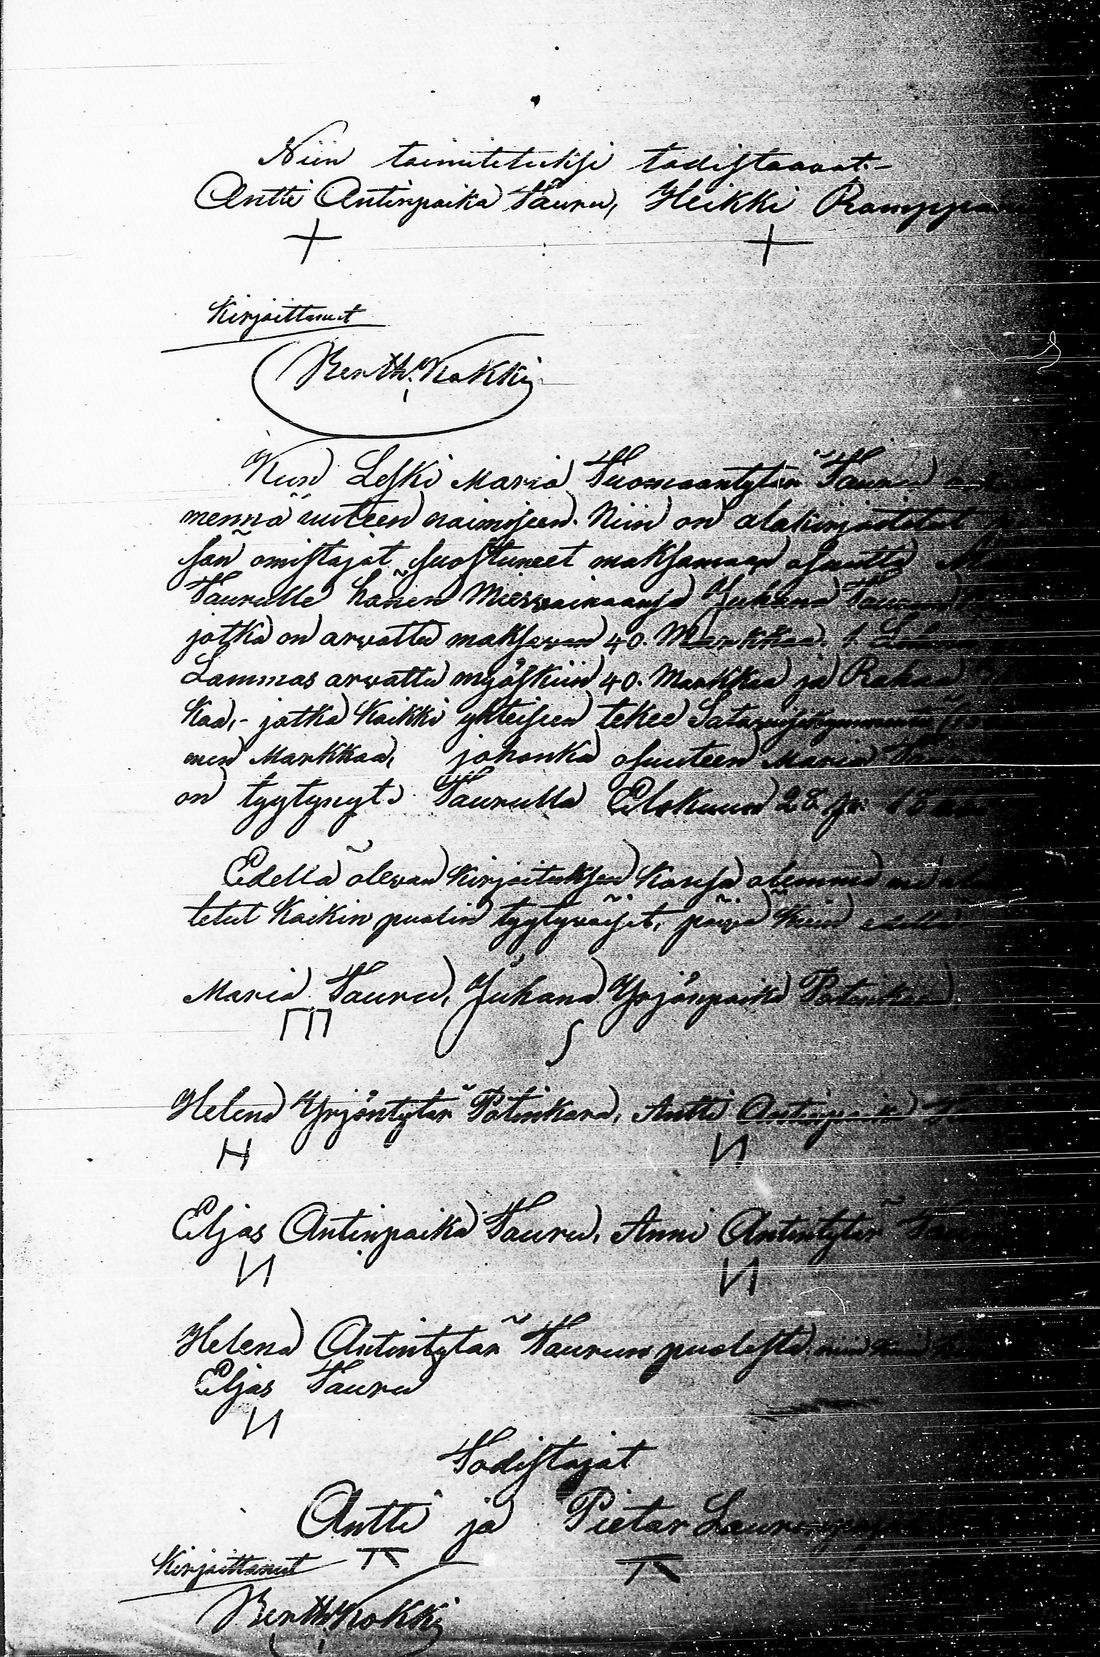 Niin toimitetuksi todistaavat.
Antti Antinpoika Tauru, Heikki
Kirjoittanut
Berth. Kokki
Kun Leski Maria Tuomaantytär Tauru
mennä uuteen naimiseen. Niin on alakirjoitetut
san omistajat suostuneet maksamaan osuutta
Taurulle hänen Miesvainaansa Juhana Taurun
jotka on arvattu maksavan 40. Markkaa. 1
Lammas arvattu myöskiin 40. Markkaa ja Rahaa
kaa,- jotka kaikki yhteiseen tekee
men Markkaa, johonka osuuteen Maria
on tyytynyt. Taurulla Elokuun 28 p:
Edellä olevan kirjoituksen kanssa olemma me
tetut kaikin puolin tyytyväiset, päivä kuin edellä
Maria Tauru, Juhana Yrjönpoika
Helena Yrjöntytär Potinkara, Antti Antinpoika
H
Eljas Antinpoika Tauru, Anni Antintytär
Helena Antintytär Taurun puolesta niin kuin
Eljas Tauru
Todistajat
Antti ja Pietar
Kirjoittanut
Berth. Kokki